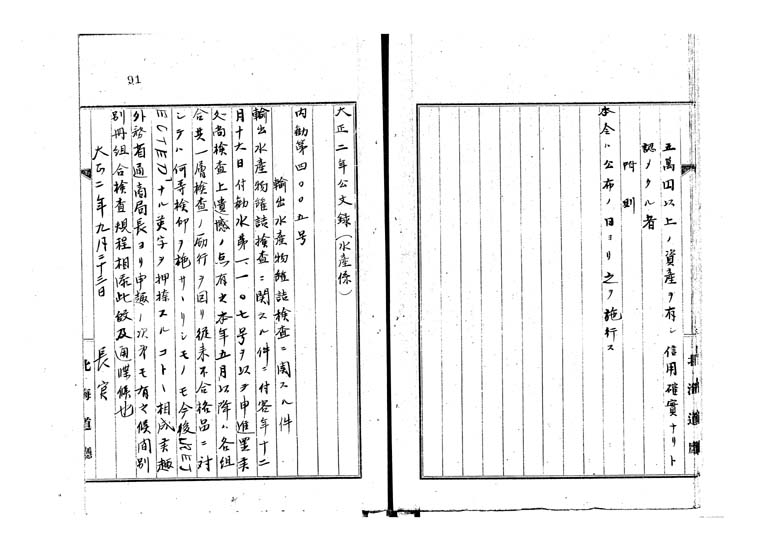 五萬円以上ノ資産ヲ有シ信用確実ナリト
認メタル者
附則
本令ハ公布ノ日ヨリ之ヲ施行ス
北海道庁
大正二年公文録(水産係)
内勧第四〇〇五号
輸出水産物罐詰検査ニ関スル件
輸出水産物罐詰検査ニ関スル件ニ付客年十二
月十六日付勧水第一一〇七号ヲ以テ申進置候
処尚検査上遺憾ノ点有之本年五月以降ハ各組
合共一層検査ノ励行ヲ図リ従来不合格品ニ対
シテハ何等検印ヲ施サヽリシモノモ今後REJ
ECTEDナル英字ヲ押捺スルコトヽ相成候趣
外務省通商局長ヨリ申越ノ次第モ有之候間別
別冊組合検査規程相添此段及通牒候也
大正二年九月二十三日
長官
北海道庁
91